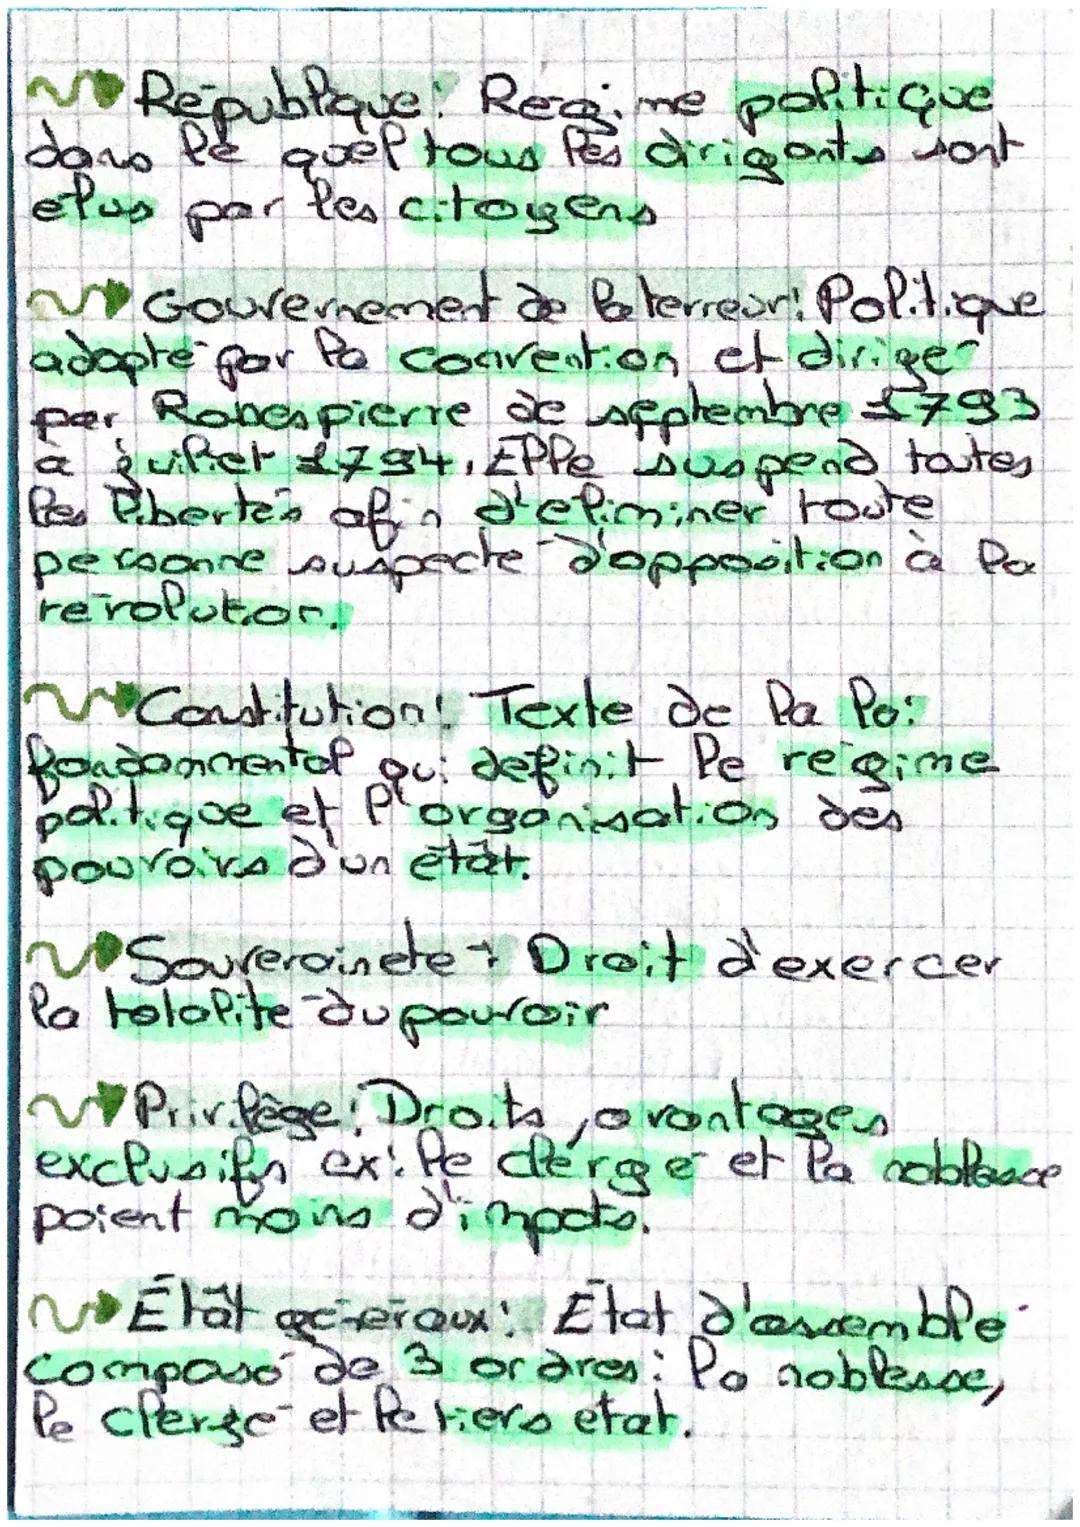 République: Régime politique
dans le quel tous les dirigants sont
élus par les citoyens
Gouvernement de la terreur: Politique
adopté par la convention et dirigé
par Robespierre de septembre 1793
à juillet 1794, Elle suspend toutes
les libertés afin d'éliminer toute
personne suspecte d'opposition à la
révolution.
Constitution: Texte de la loi
fondammental qui définit le régime
politique et l'organisation des
pouvoirs d'un état.
Souveraineté: Droit d'exercer
la totalité du pouvoir
Privilège: Droits, avantages
exclusifs ex: le clergé et la noblesse
paient moins d'impots.
État généraux: État d'assemblé
composé de 3 ordres: la noblesse,
le clergé et le tiers état.